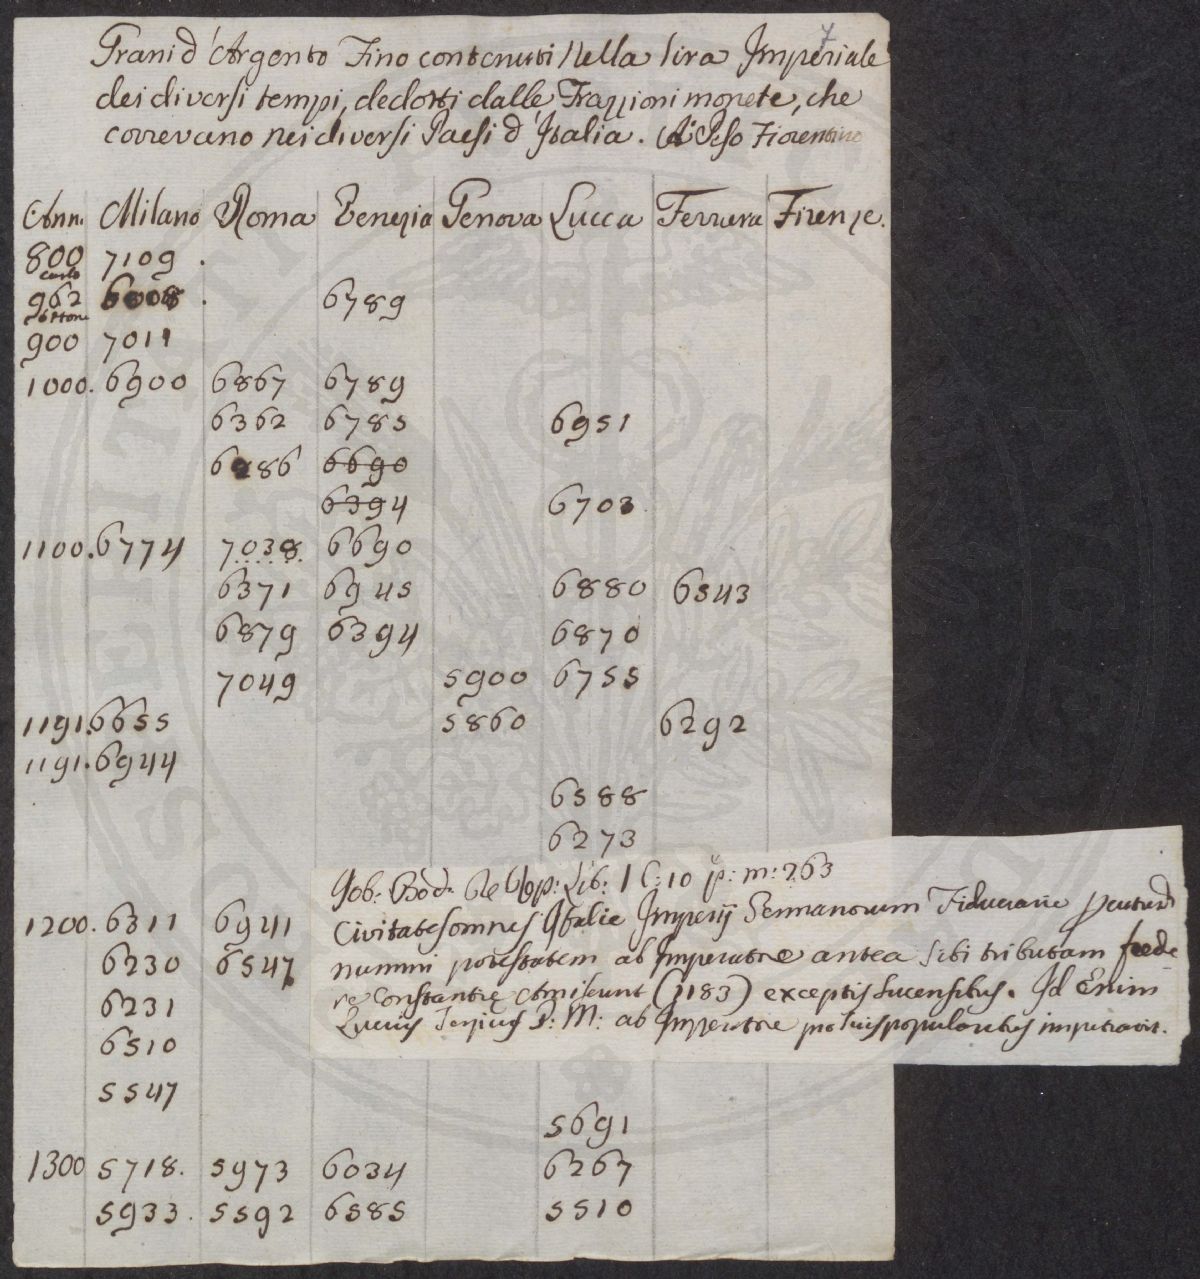 7
Grani d'Argento Fino contenuti Nella lira Imperiale
dei diversi tempi, dedotti dalle Frazzioni monete, che
correvano nei diversi Paesi d'Italia. A Peso Fiorentino
Ann. Milano Roma Venezia Genova Lucca Ferrara Firenze.
800 7109 .
Carlo
962 6008 . 6789
Ottone
900 7011
1000. 6900 6867 6789
6362 6785 6951
6286 6690
6394 6703
1100. 6774 7038 6690
6371 6945 6880 6543
6879 6394 6870
7049 5900 6755
1191. 6655 5860 6292
1191. 6944
6588
6273
Gob: Bod: De Rep: Lib: 1 C: 10 p: m: 263
Civitates omnes Italie Imperij Germanorum Fiduciarie
1200. 6311 6941
nummi potestatem ab Imperatore antea sibi tributam foede-
6230 6547
re Constantie Amiserunt (1183) exceptis Lucensibus. Id Enim
6231
Lucius Tertius P: M: ab Imperatore pro suis popularibus impetravit.
6510
5547
5691
1300 5718. 5973 6034 6267
5933. 5592 6585 5510